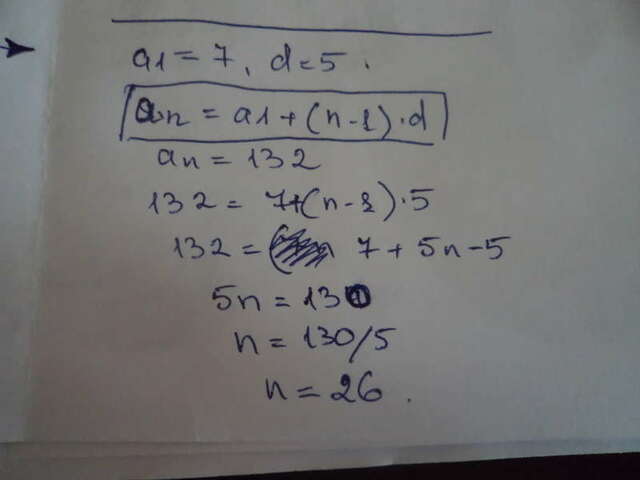 a1 = 7, d = 5.
an = a1 + (n - 1) · d
an = 132
132 = 7 + (n - 1) · 5
132 = 7 + 5n - 5
5n = 130
n = 130/5
n = 26.